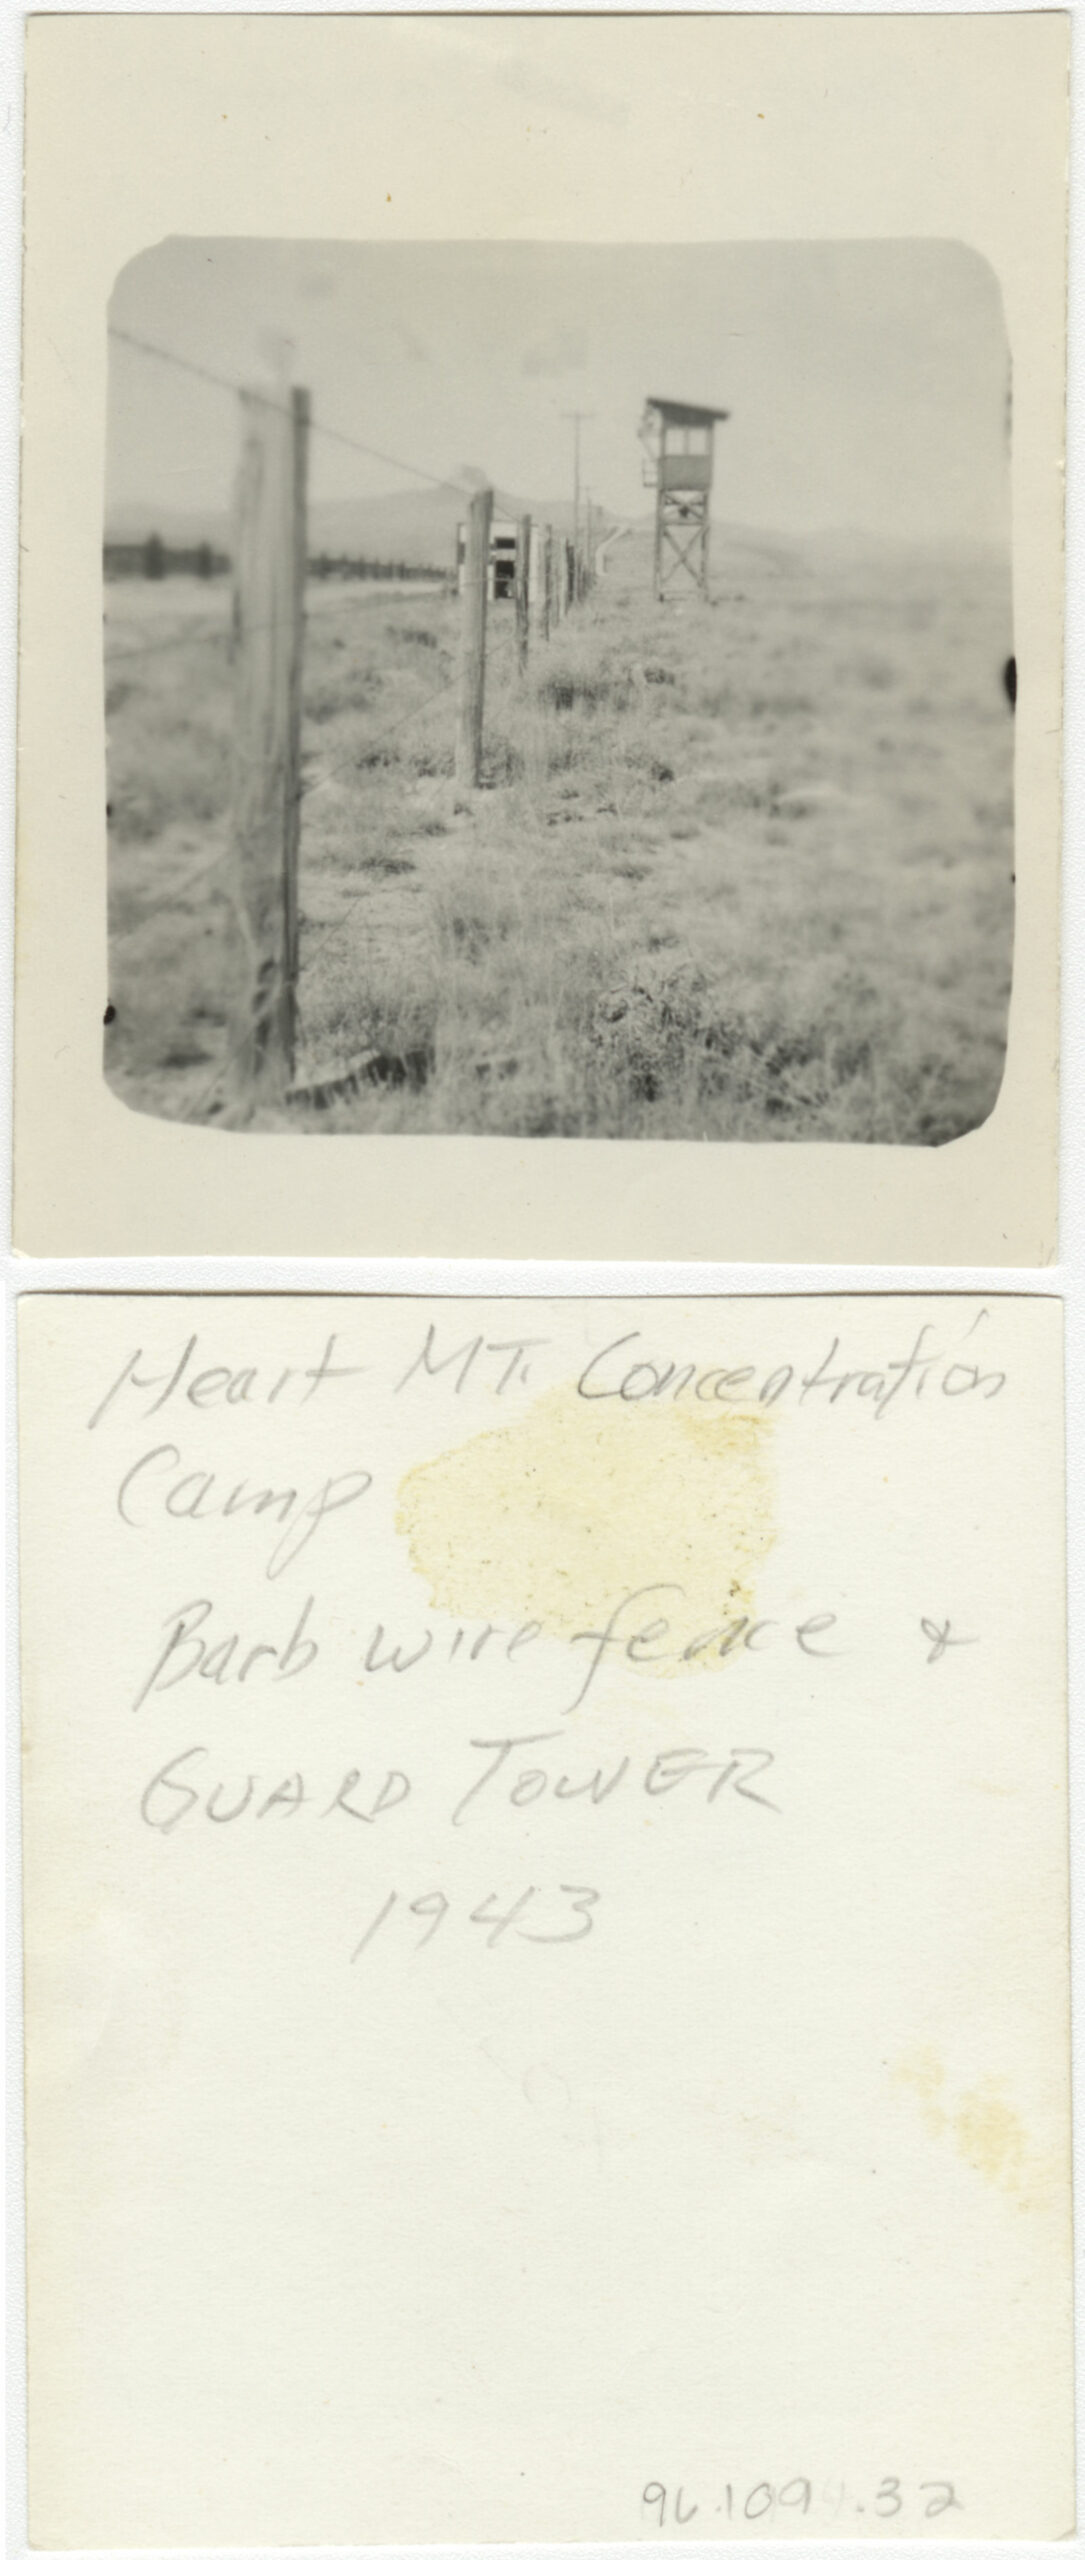 Heart MT. Concentration
Camp
Barb wire fence &
GUARD TOWER
1943
96.109.32